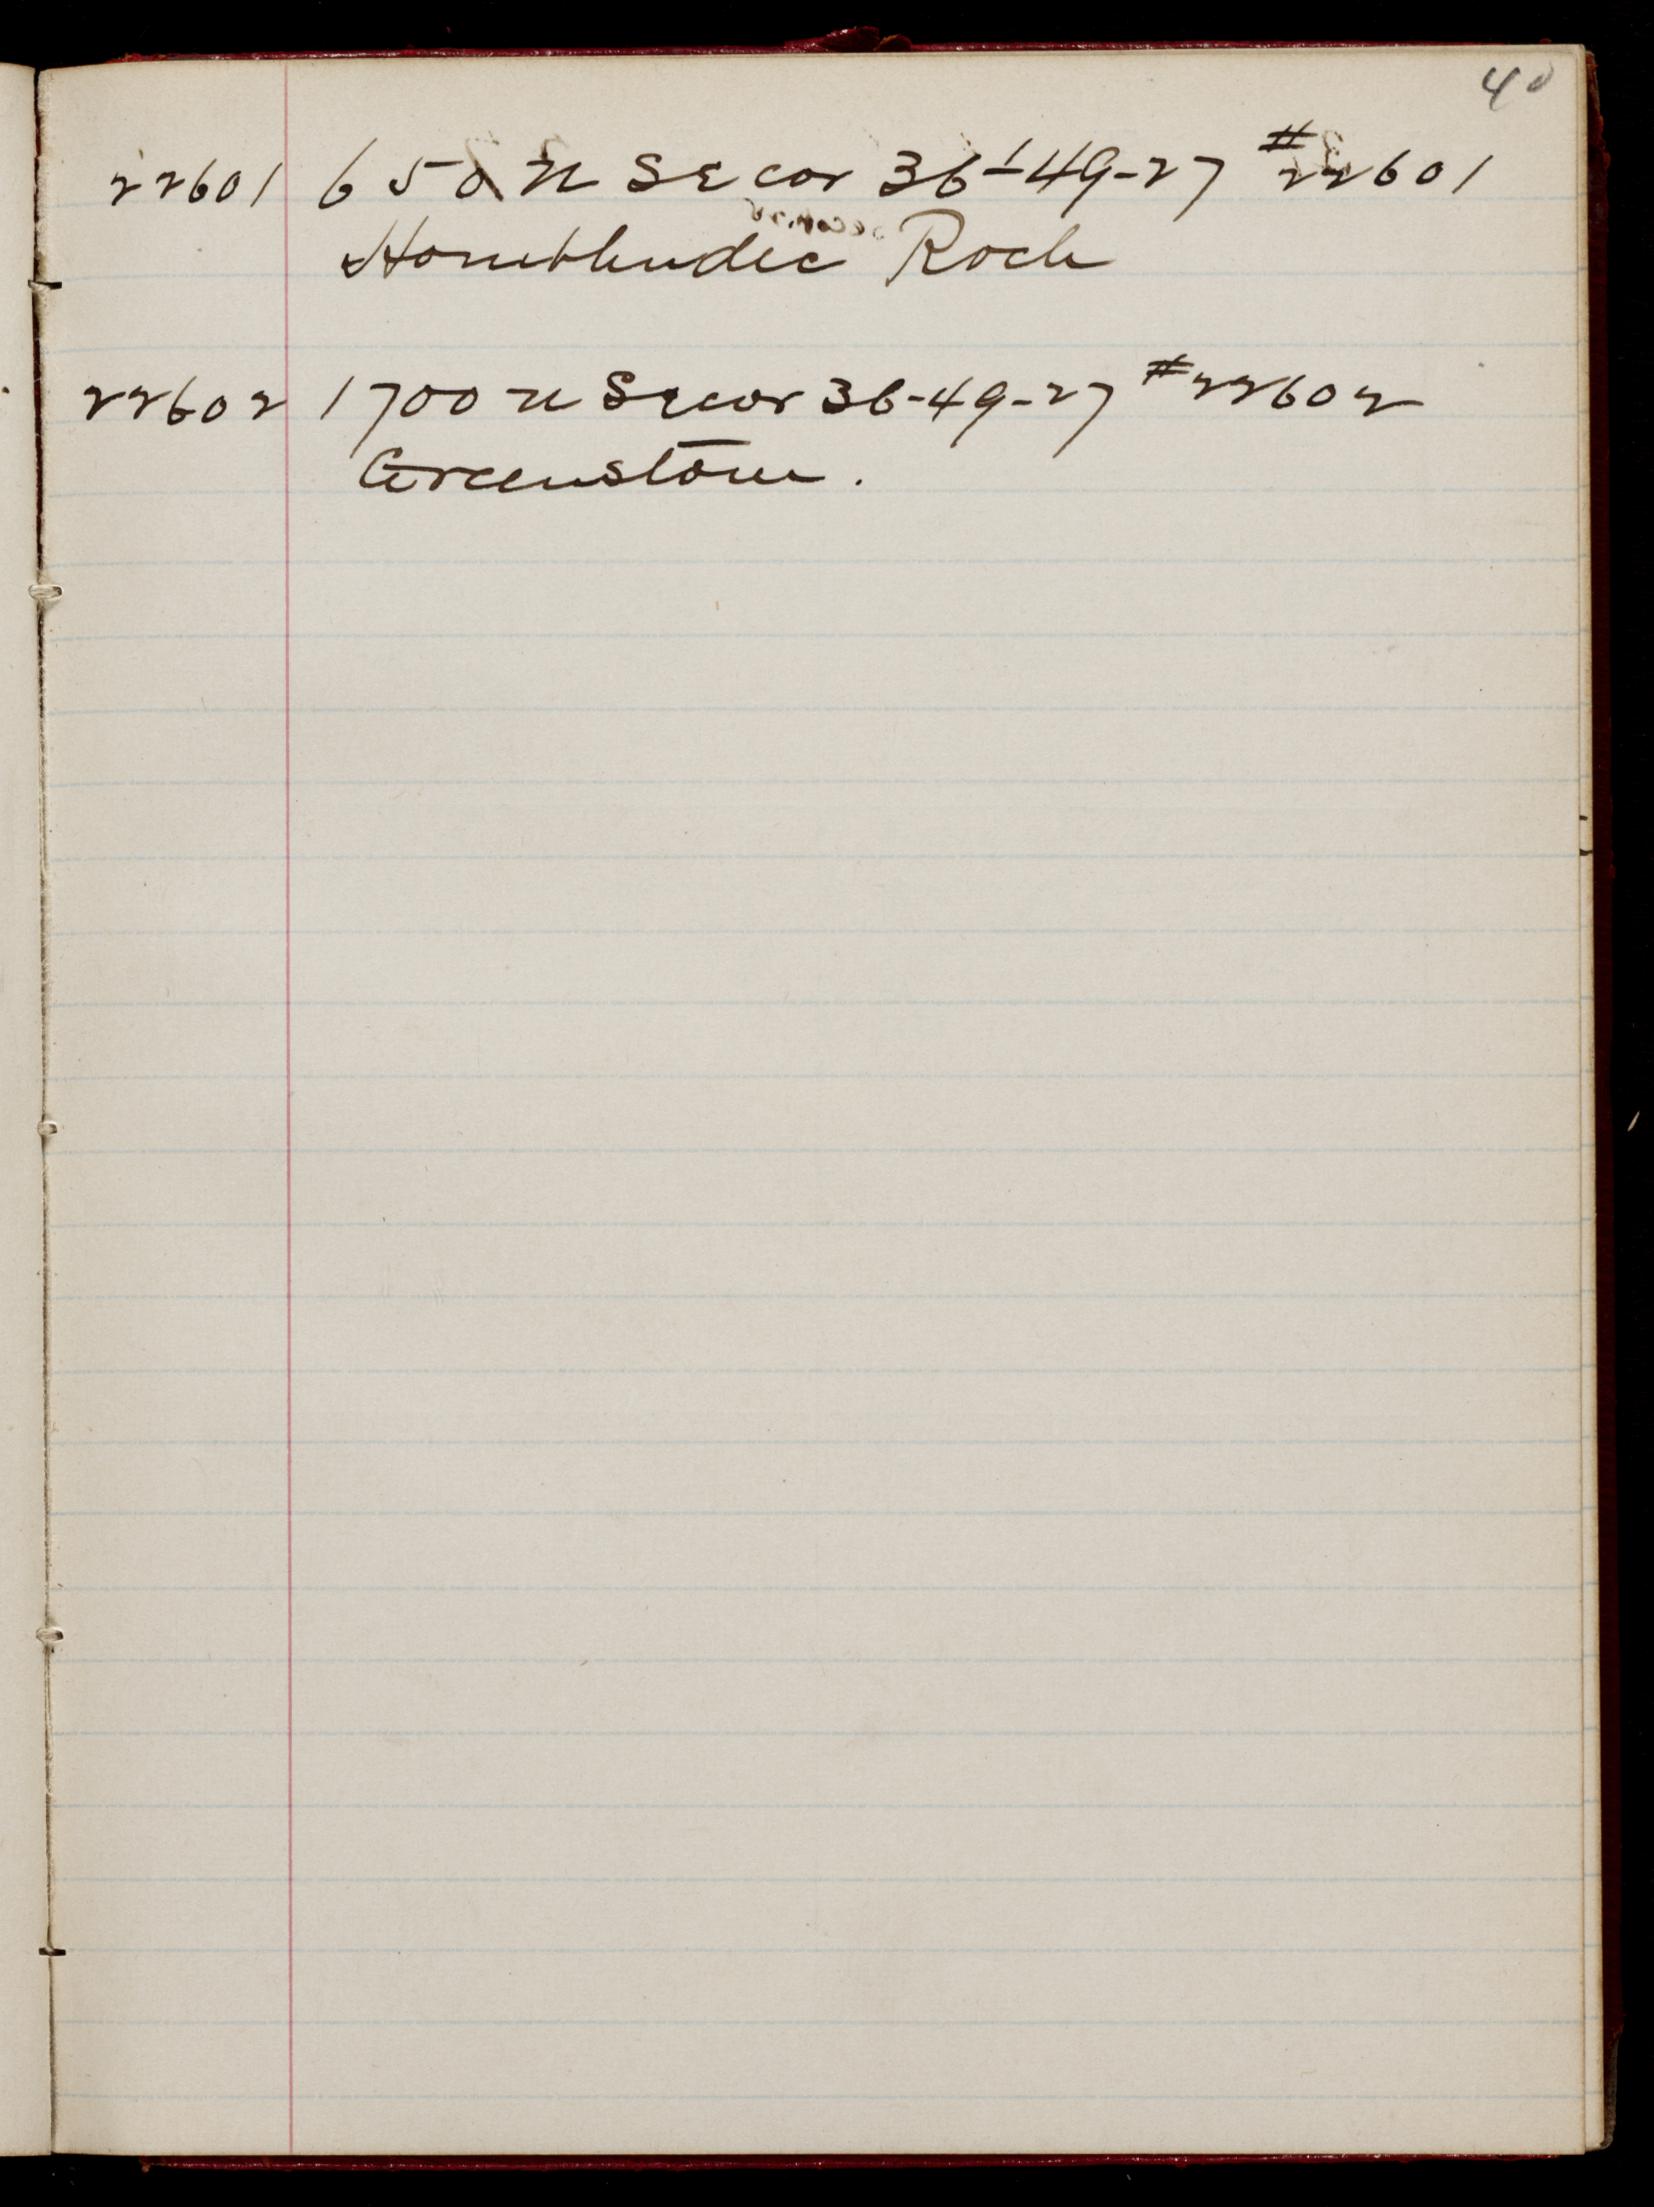 40
22601 650 N SE cor 36-49-27 #22601
Hornblendic Rock
22602 1700 N SE cor 36-49-27 #22602
Greenstone.